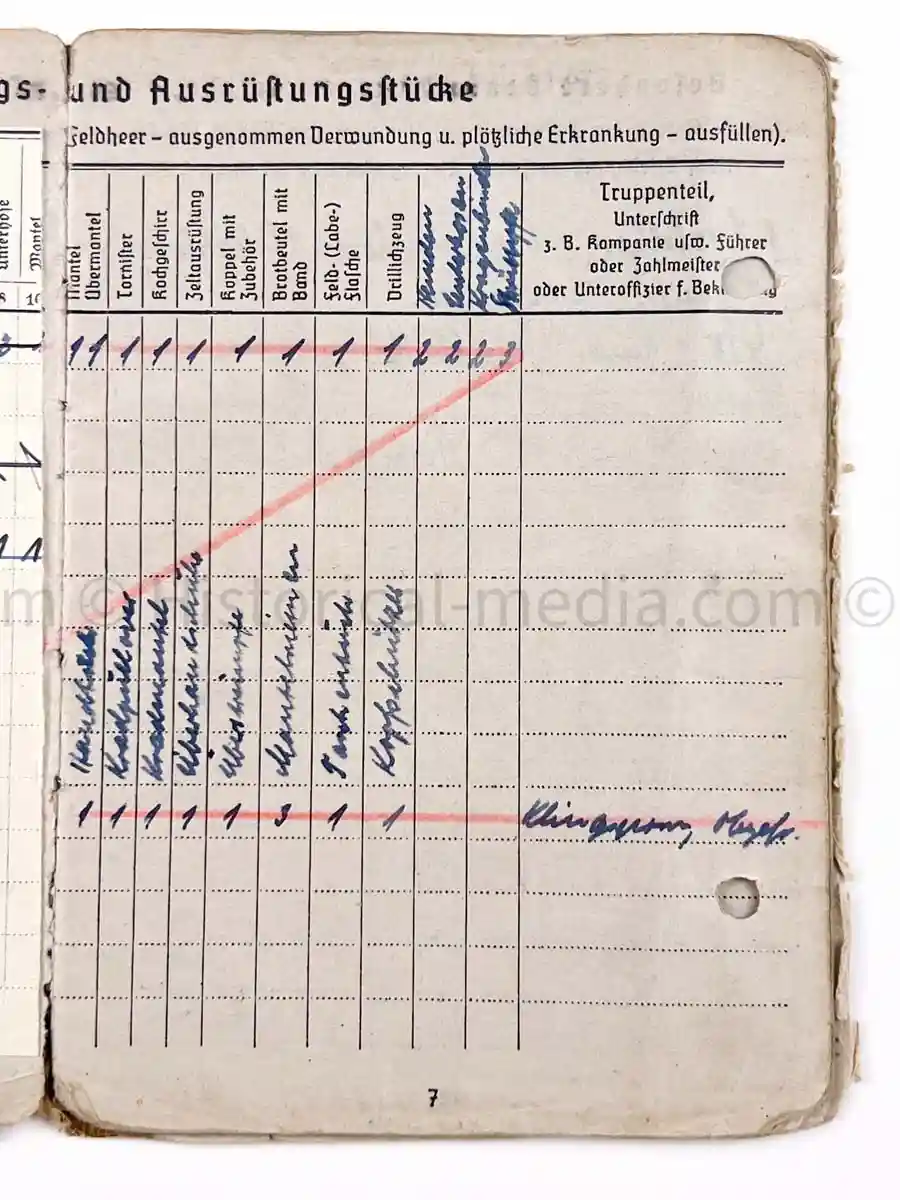 gs- und Ausrüstungsstücke
Feldheer – ausgenommen Verwundung u. plötzliche Erkrankung – ausfüllen).
Unterhose
Mantel
Mantel
Obermantel
Tornister
Kochgeschirr
Zeltausrüstung
Koppel mit
Zubehör
Brotbeutel mit
Band
Feld- (Labe-)
flasche
Drillichzeug
Hemden
Unterhosen
Kragenbinden
Truppenteil,
Unterschrift
z. B. Kompanie usw. Führer
oder Zahlmeister
oder Unteroffizier f. Bek
1 1 1 1 1 1 1 1 1 2 2 2 3
Überhandschuhe
Überstrümpfe
Mantelriemen
Kopfschützer
1 1 1 1 1 3 1 1 Obgefr.
7
m © Historical-media.com ©